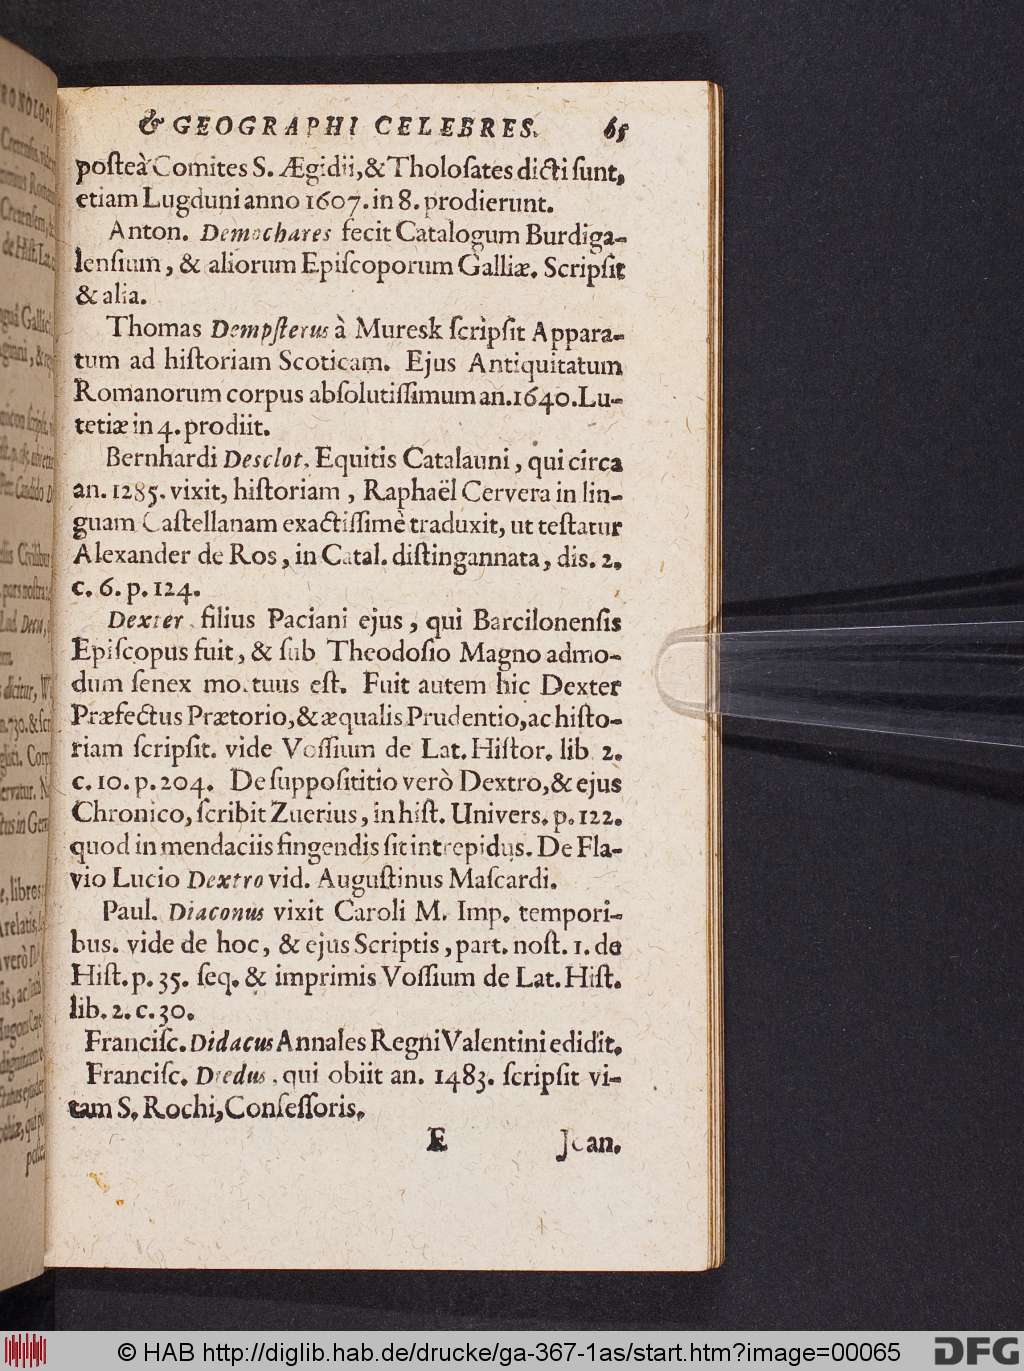 & GEOGRAPHI CELEBRES. 65
poſteà Comites S. Ægidii, & Tholoſates dicti ſunt,
etiam Lugduni anno 1607. in 8. prodierunt.
Anton. Demochares fecit Catalogum Burdiga-
lenſium, & aliorum Epiſcoporum Galliæ. Scripſit
& alia.
Thomas Dempſterus à Muresk ſcripſit Appara-
tum ad hiſtoriam Scoticam. Ejus Antiquitatum
Romanorum corpus abſolutiſſimum an. 1640. Lu-
tetiæ in 4. prodiit.
Bernhardi Desclot, Equitis Catalauni, qui circa
an. 1285. vixit, hiſtoriam, Raphaël Cervera in lin-
guam Caſtellanam exactiſſimè traduxit, ut teſtatur
Alexander de Ros, in Catal. diſtingannata, dis. 2.
c. 6. p. 124.
Dexter, filius Paciani ejus, qui Barcilonenſis
Epiſcopus fuit, & ſub Theodoſio Magno admo-
dum ſenex mortuus eſt. Fuit autem hic Dexter
Præfectus Prætorio, & æqualis Prudentio, ac hiſto-
riam ſcripſit. vide Voſſium de Lat. Hiſtor. lib. 2.
c. 10. p. 204. De ſuppoſititio verò Dextro, & ejus
Chronico, ſcribit Zuerius, in hiſt. Univers. p. 122.
quod in mendaciis fingendis ſit intrepidus. De Fla-
vio Lucio Dextro vid. Auguſtinus Maſcardi.
Paul. Diaconus vixit Caroli M. Imp. tempori-
bus. vide de hoc, & ejus Scriptis, part. noſt. 1. de
Hiſt. p. 35. ſeq. & imprimis Voſſium de Lat. Hiſt.
lib. 2. c. 30.
Franciſc. Didacus Annales Regni Valentini edidit.
Franciſc. Diedus, qui obiit an. 1483. ſcripſit vi-
tam S. Rochi, Confeſſoris.
E Joan.
© HAB http://diglib.hab.de/drucke/ga-367-1as/start.htm?image=00065
DFG